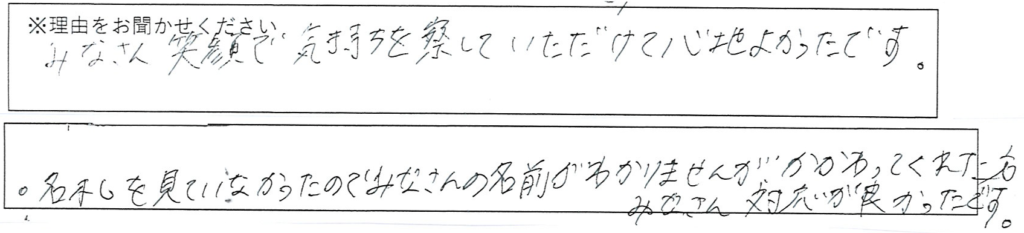 ※理由をお聞かせください
みなさん笑顔で気持ちを察していただけて心地よかったです。
。名木しを見ていなかったのでみなさんの名前がわかりませんがかかわってくれた方
みなさん対応が良かったです。